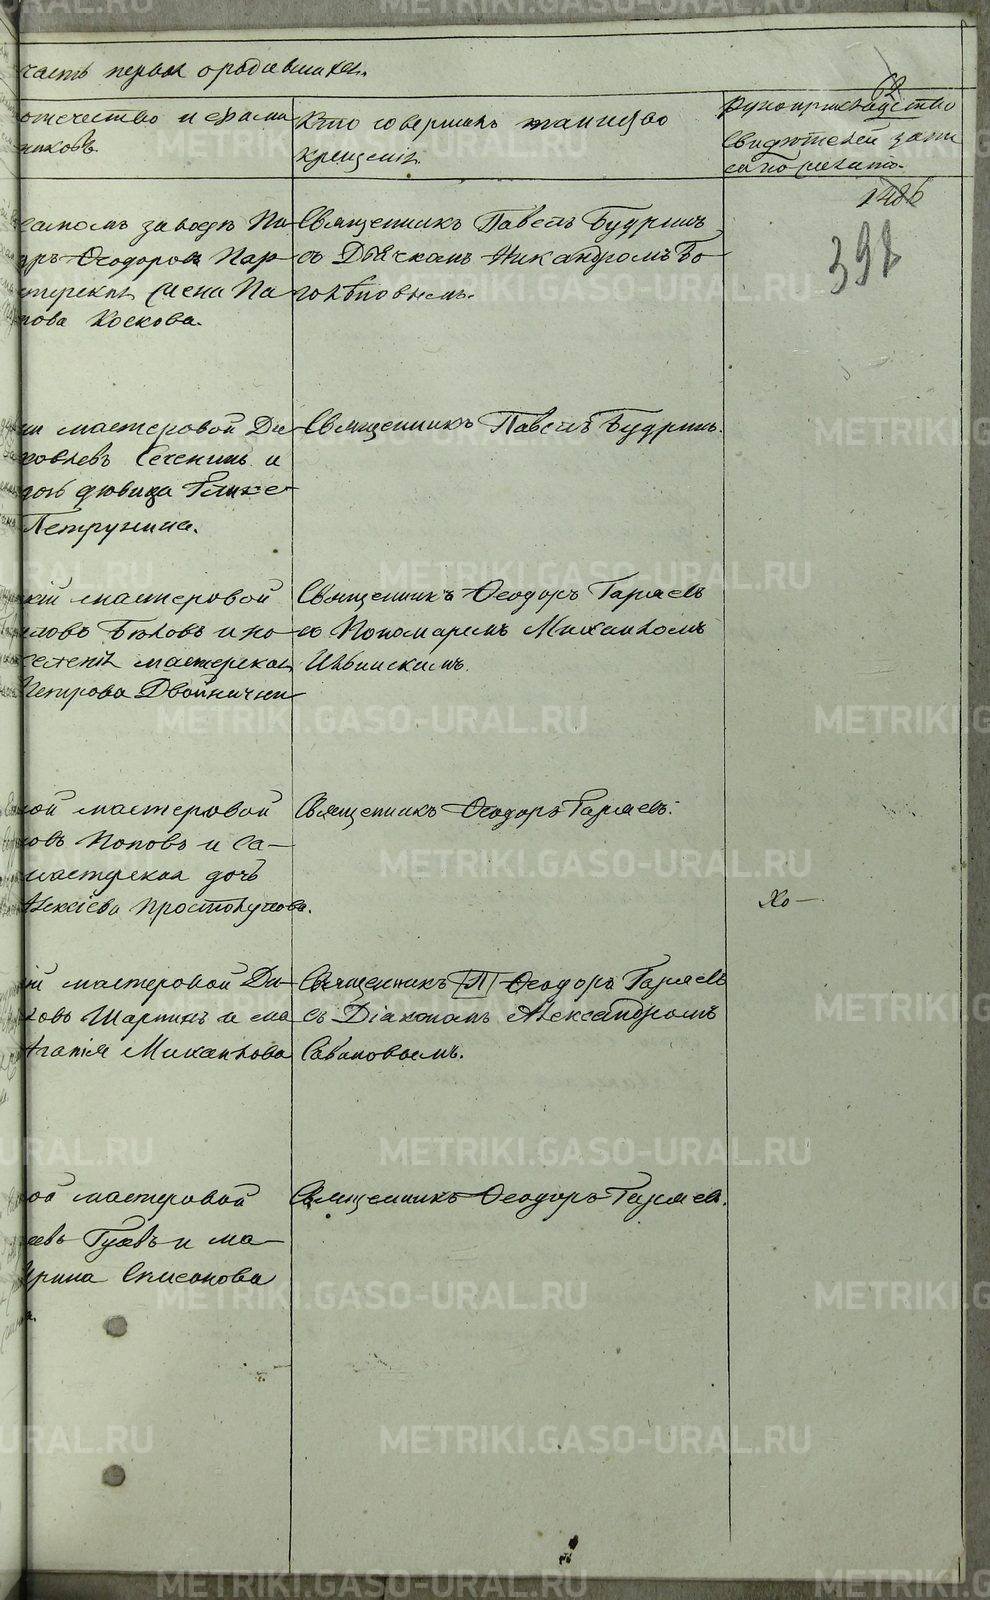 часть первая о родившихся.
62
отчество и фами
никовъ.
Кто совершалъ таинство
крещенія
Рукоприкладство
свидѣтелей запи
си по желанію.
1486
398
самомъ заводѣ Па
Ѳеодоровъ Пар
мастерская жена Па
пова Коскова.
Священникъ Павелъ Будринъ
съ Дьячкомъ Никандромъ Бо
голѣповымъ.
мастеровой Ди
ковлевъ Сеченинъ и
дочь дѣвица Глике
Петрунина.
Священникъ Павелъ Будринъ.
кій мастеровой
ловъ Бѣловъ и по
селенія мастерская
Петрова Двойничн
Священникъ Ѳеодоръ Гаряевъ
съ Пономаремъ Михаиломъ
Ильинскимъ.
кой мастеровой
ковъ Поповъ и са-
мастерская дочь
Алексіева Простолупова.
Священникъ Ѳеодоръ Гаряевъ.
Хо-
кій мастеровой Ди
ковъ Шарпинъ и ма
Агапія Михаилова
Священникъ П Ѳеодоръ Гаряевъ
съ Діакономъ Александромъ
Сабановымъ.
кой мастеровой
евъ Гуевъ и ма-
Ирина Списонова
Священникъ Ѳеодоръ Гаряевъ.
METRIKI.GASO-URAL.RU